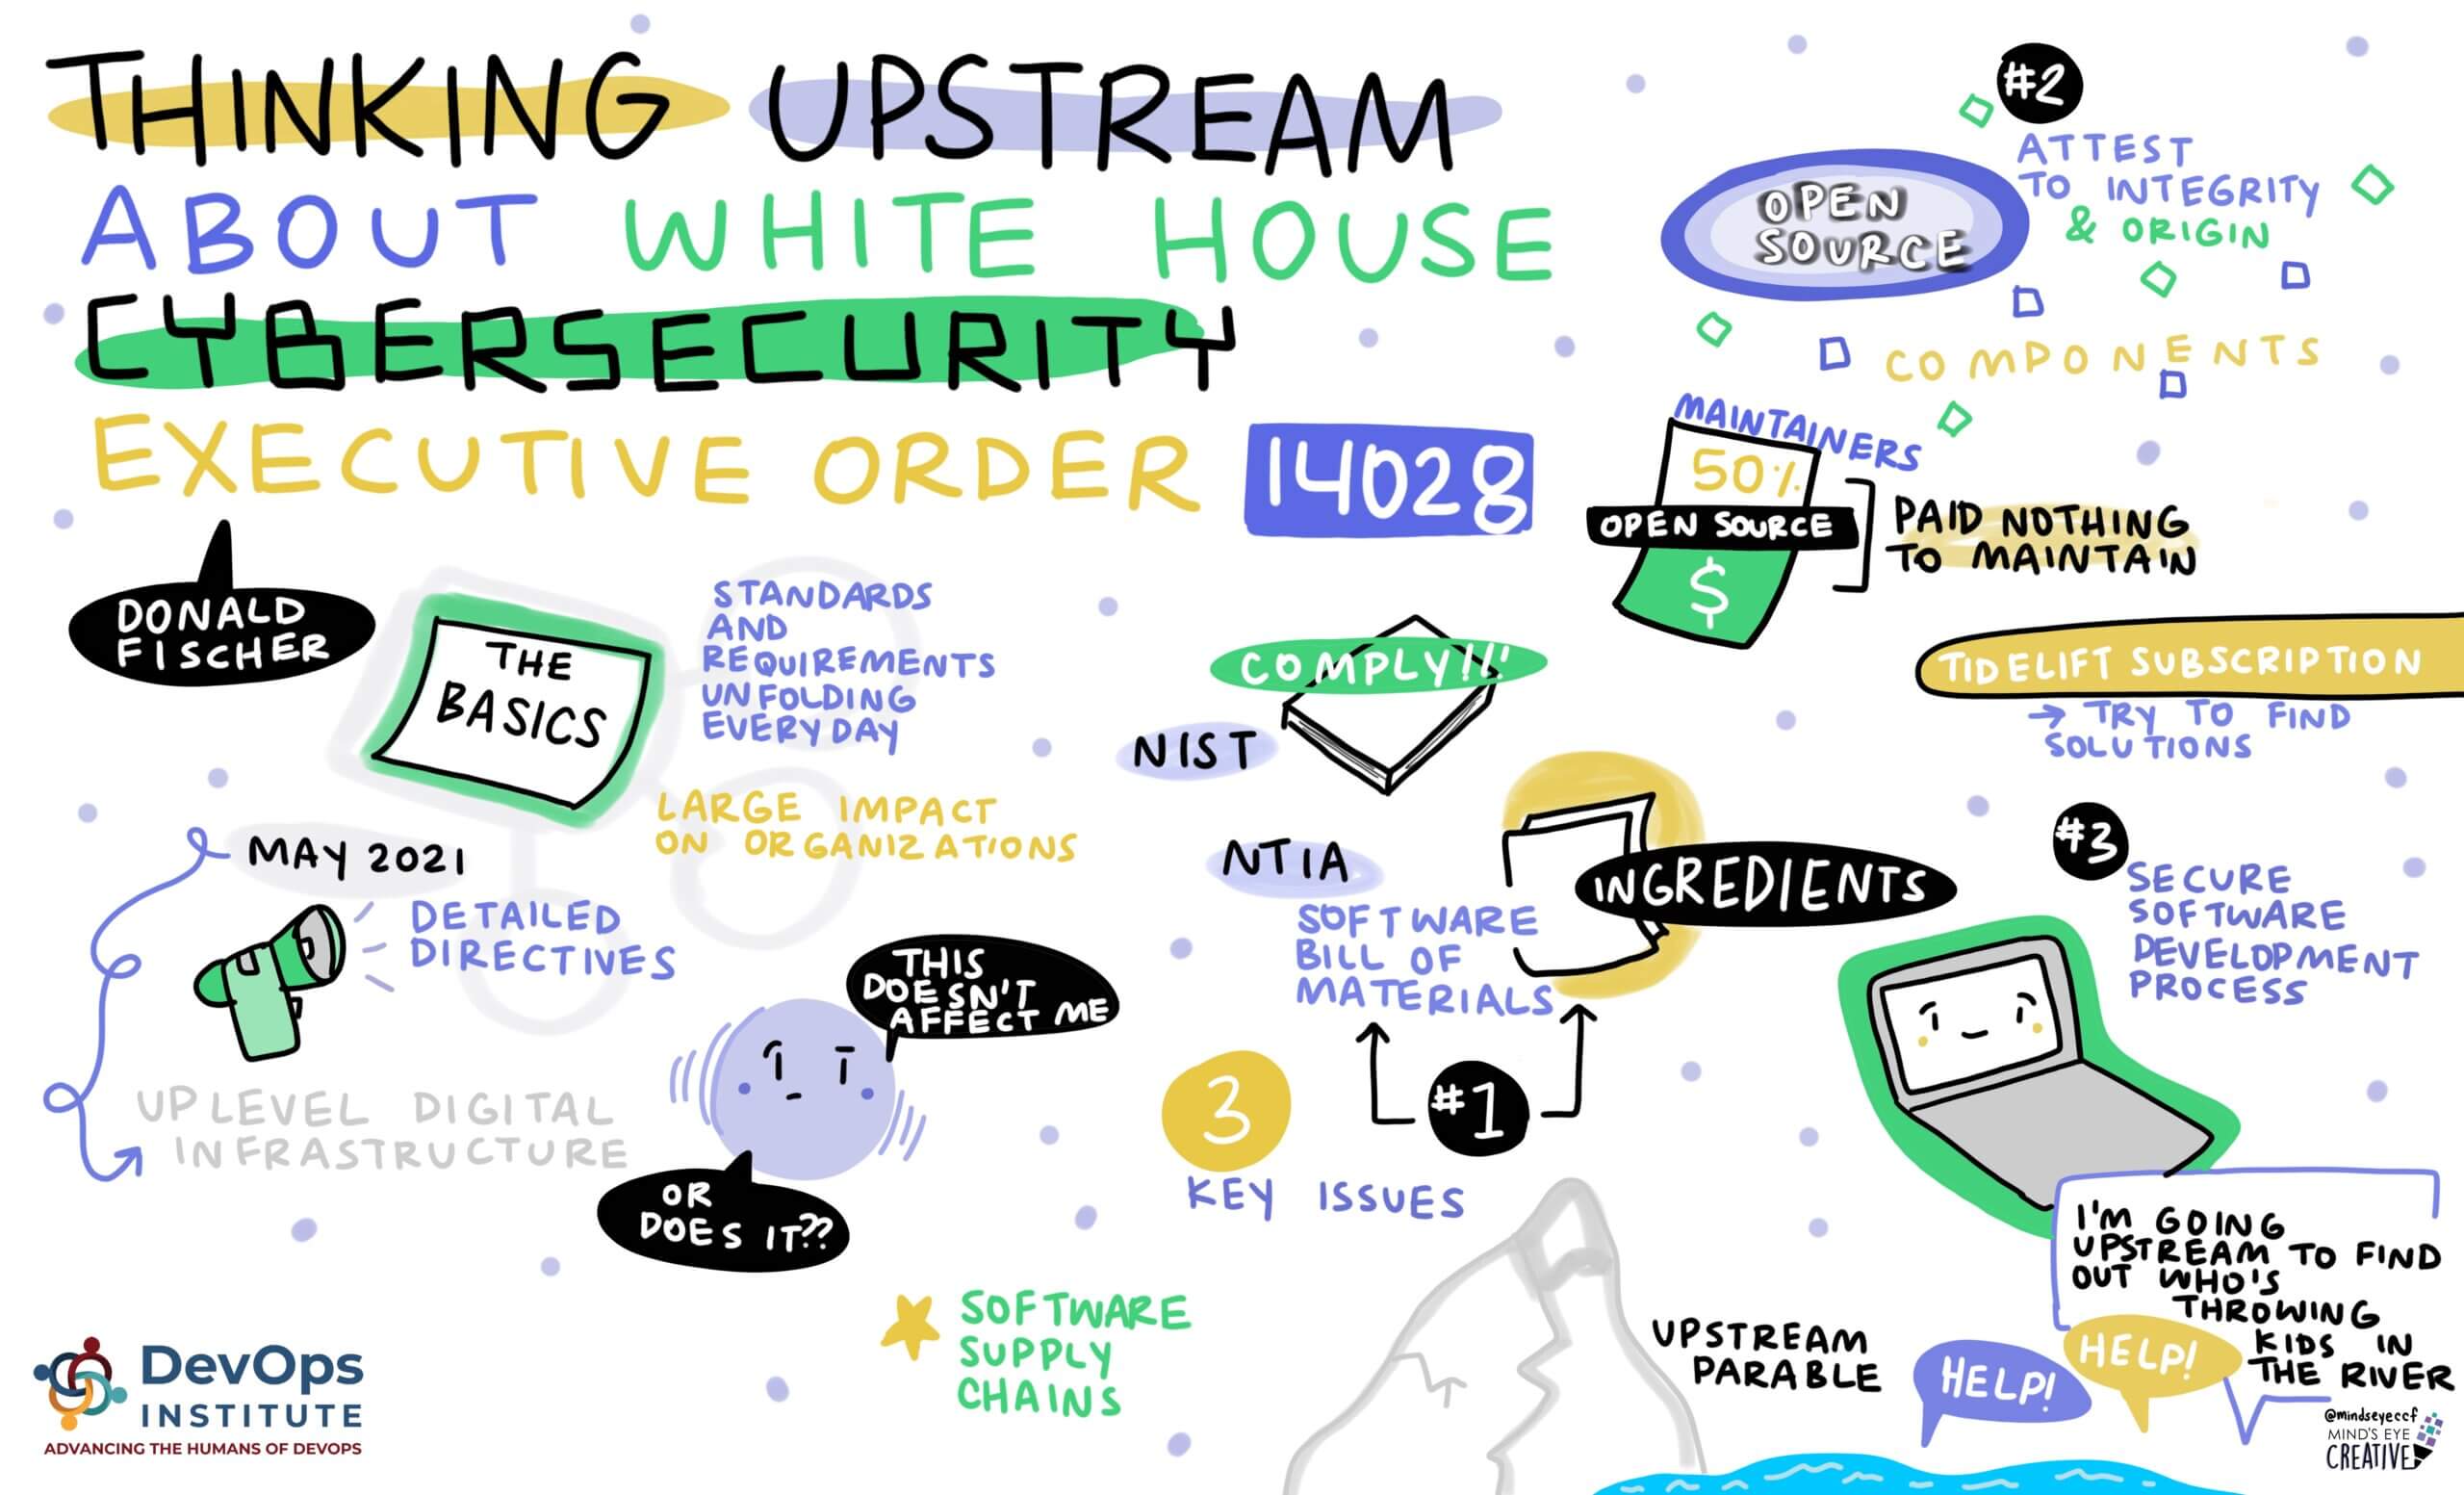 THINKING UPSTREAM
ABOUT WHITE HOUSE
CYBERSECURITY
EXECUTIVE ORDER 14028
DONALD
FISCHER
THE
BASICS
STANDARDS
AND
REQUIREMENTS
UNFOLDING
EVERYDAY
LARGE IMPACT
ON ORGANIZATIONS
MAY 2021
DETAILED
DIRECTIVES
UPLEVEL DIGITAL
INFRASTRUCTURE
THIS
DOESN'T
AFFECT ME
OR
DOES IT??
SOFTWARE
SUPPLY
CHAINS
COMPLY!!!
NIST
NTIA
INGREDIENTS
SOFTWARE
BILL OF
MATERIALS
3
KEY ISSUES
#1
#2
ATTEST
TO INTEGRITY
& ORIGIN
OPEN
SOURCE
COMPONENTS
MAINTAINERS
50%
OPEN SOURCE
$
PAID NOTHING
TO MAINTAIN
TIDELIFT SUBSCRIPTION
→ TRY TO FIND
SOLUTIONS
#3
SECURE
SOFTWARE
DEVELOPMENT
PROCESS
I'M GOING
UPSTREAM TO FIND
OUT WHO'S
THROWING
KIDS IN
THE RIVER
UPSTREAM
PARABLE
HELP!
HELP!
DevOps
INSTITUTE
ADVANCING THE HUMANS OF DEVOPS
@mindseyeccf
MIND'S EYE
CREATIVE